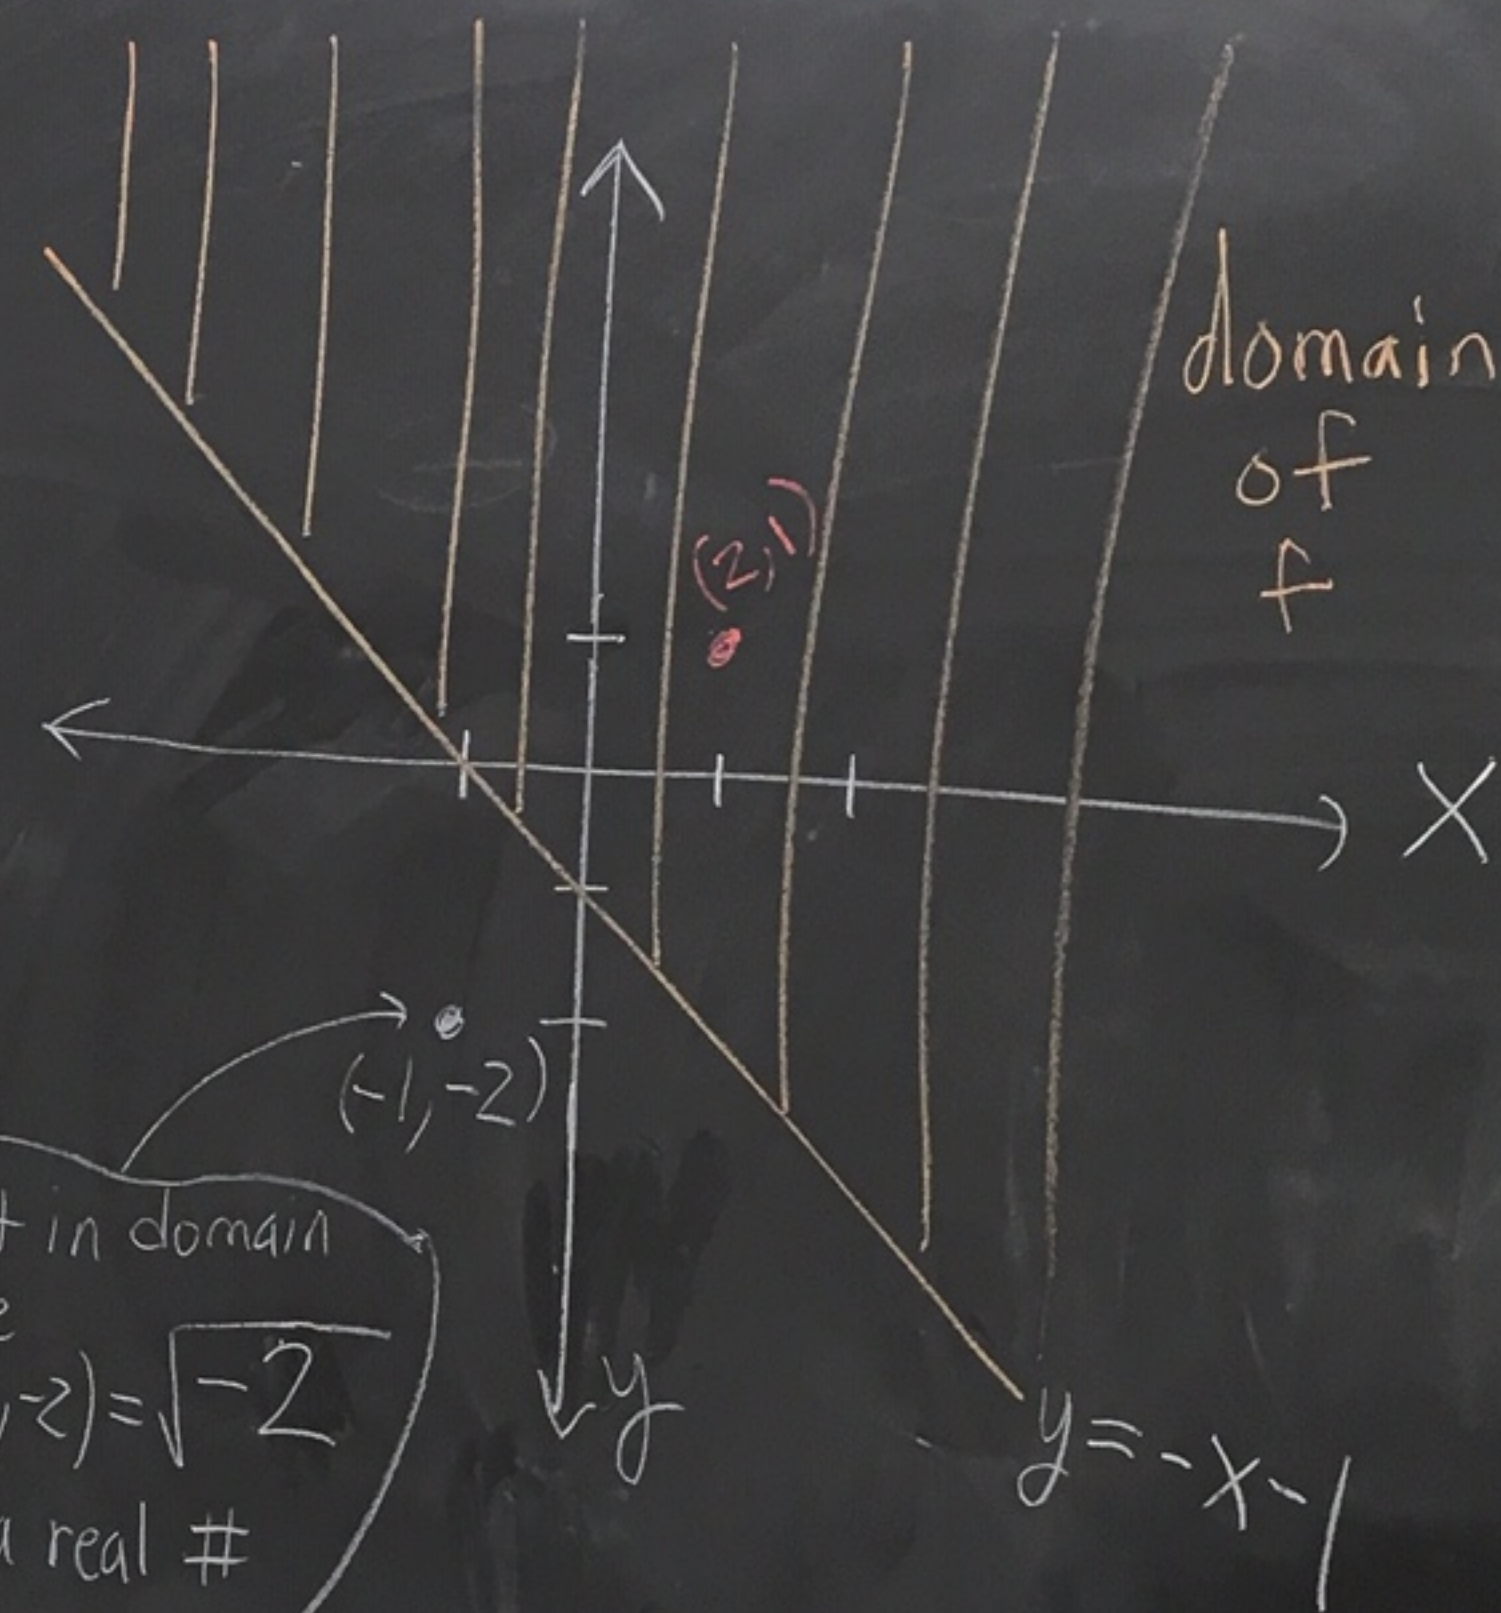 domain
of
f
(2,1)
X
(-1,-2)
t in domain
e
,-2)=√-2
a real #
y
y=-x-1